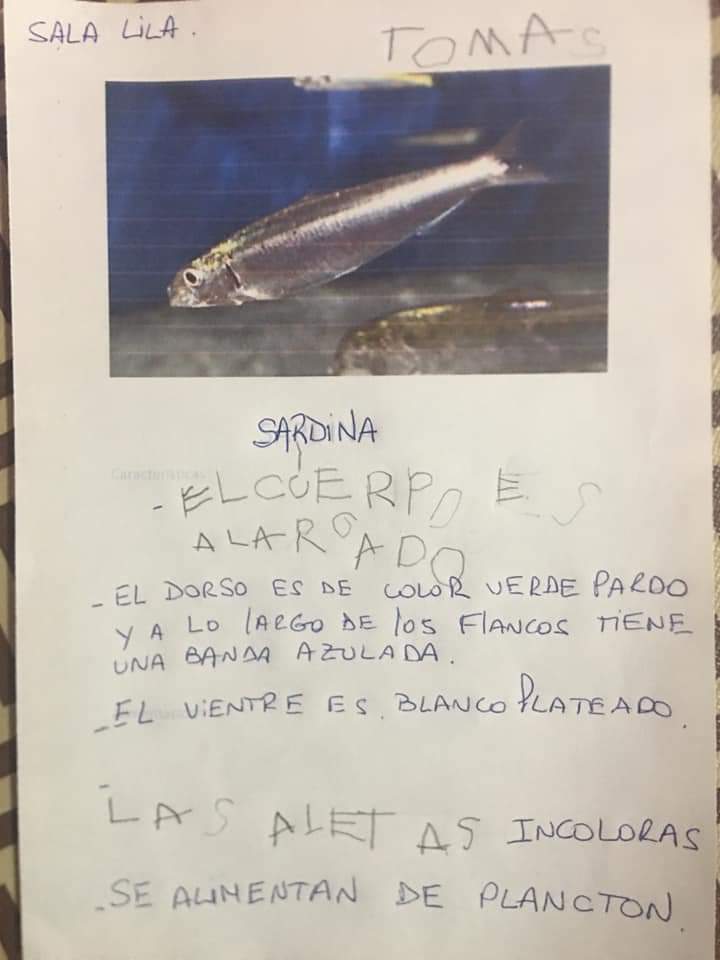 SALA LILA.
TOMAS
SARDINA
Características
- EL CUERPO ES
ALARGADO
- EL DORSO ES DE COLOR VERDE PARDO
Y A LO LARGO DE LOS FLANCOS TIENE
UNA BANDA AZULADA.
- EL VIENTRE ES BLANCO PLATEADO.
- LAS ALETAS INCOLORAS
- SE ALIMENTAN DE PLANCTON.